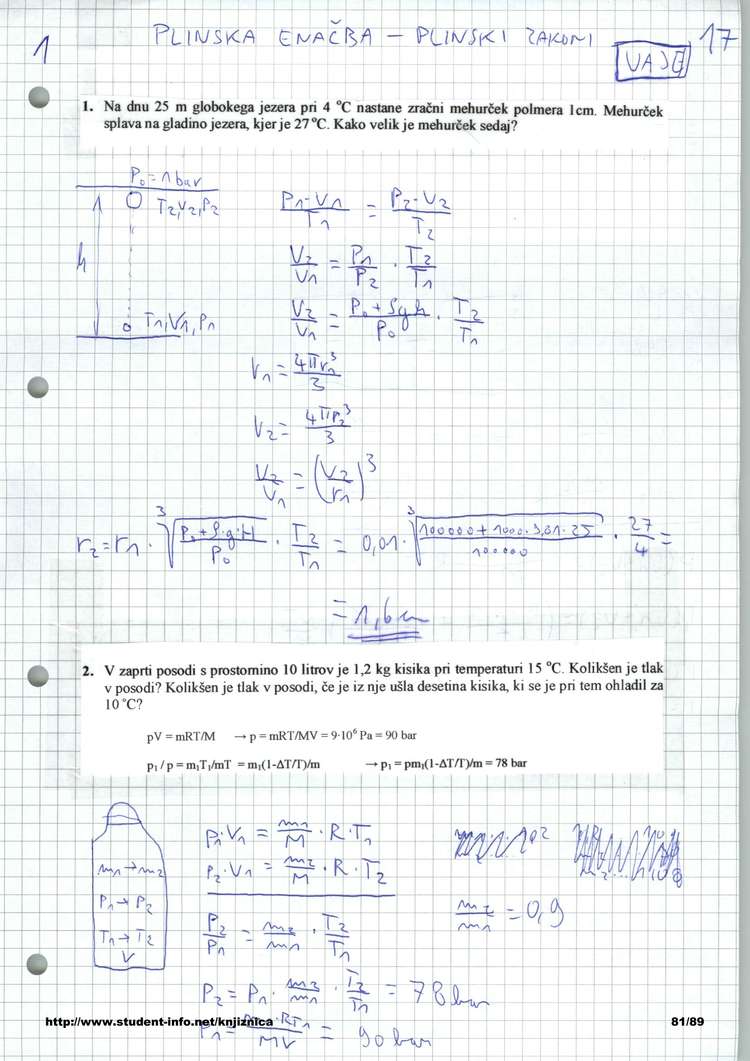 1 PLINSKA ENAČBA – PLINSKI ZAKONI 17
VAJE
1. Na dnu 25 m globokega jezera pri 4 °C nastane zračni mehurček polmera 1cm. Mehurček
splava na gladino jezera, kjer je 27°C. Kako velik je mehurček sedaj?
P₀ = 1 bar
T₂, V₂, P₂
h
T₁, V₁, P₁
P₁·V₁/T₁ = P₂·V₂/T₂
V₂/V₁ = P₁/P₂ · T₂/T₁
V₂/V₁ = (P₀ + ρgh)/P₀ · T₂/T₁
V₁ = 4πr₁³/3
V₂ = 4πr₂³/3
V₂/V₁ = (r₂/r₁)³
r₂ = r₁ · ³√((P₀ + ρ·g·H)/P₀) · T₂/T₁ = 0,01 · ³√((100000 + 1000·9,81·25)/100000) · 27/4 =
= 1,6 cm
2. V zaprti posodi s prostornino 10 litrov je 1,2 kg kisika pri temperaturi 15 °C. Kolikšen je tlak
v posodi? Kolikšen je tlak v posodi, če je iz nje ušla desetina kisika, ki se je pri tem ohladil za
10 °C?
pV = mRT/M → p = mRT/MV = 9·10⁶ Pa = 90 bar
p₁ / p = m₁T₁/mT = m₁(1-ΔT/T)/m → p₁ = pm₁(1-ΔT/T)/m = 78 bar
m₁ → m₂
P₁ → P₂
T₁ → T₂
V
P₁·V₁ = m₁/M · R · T₁
P₂·V₁ = m₂/M · R · T₂
P₂/P₁ = m₂/m₁ · T₂/T₁
m₂/m₁ = 0,9
P₂ = P₁ · m₂/m₁ · T₂/T₁ = 78 bar
http://www.student-info.net/knjiznica 81/89
MV = 90 bar